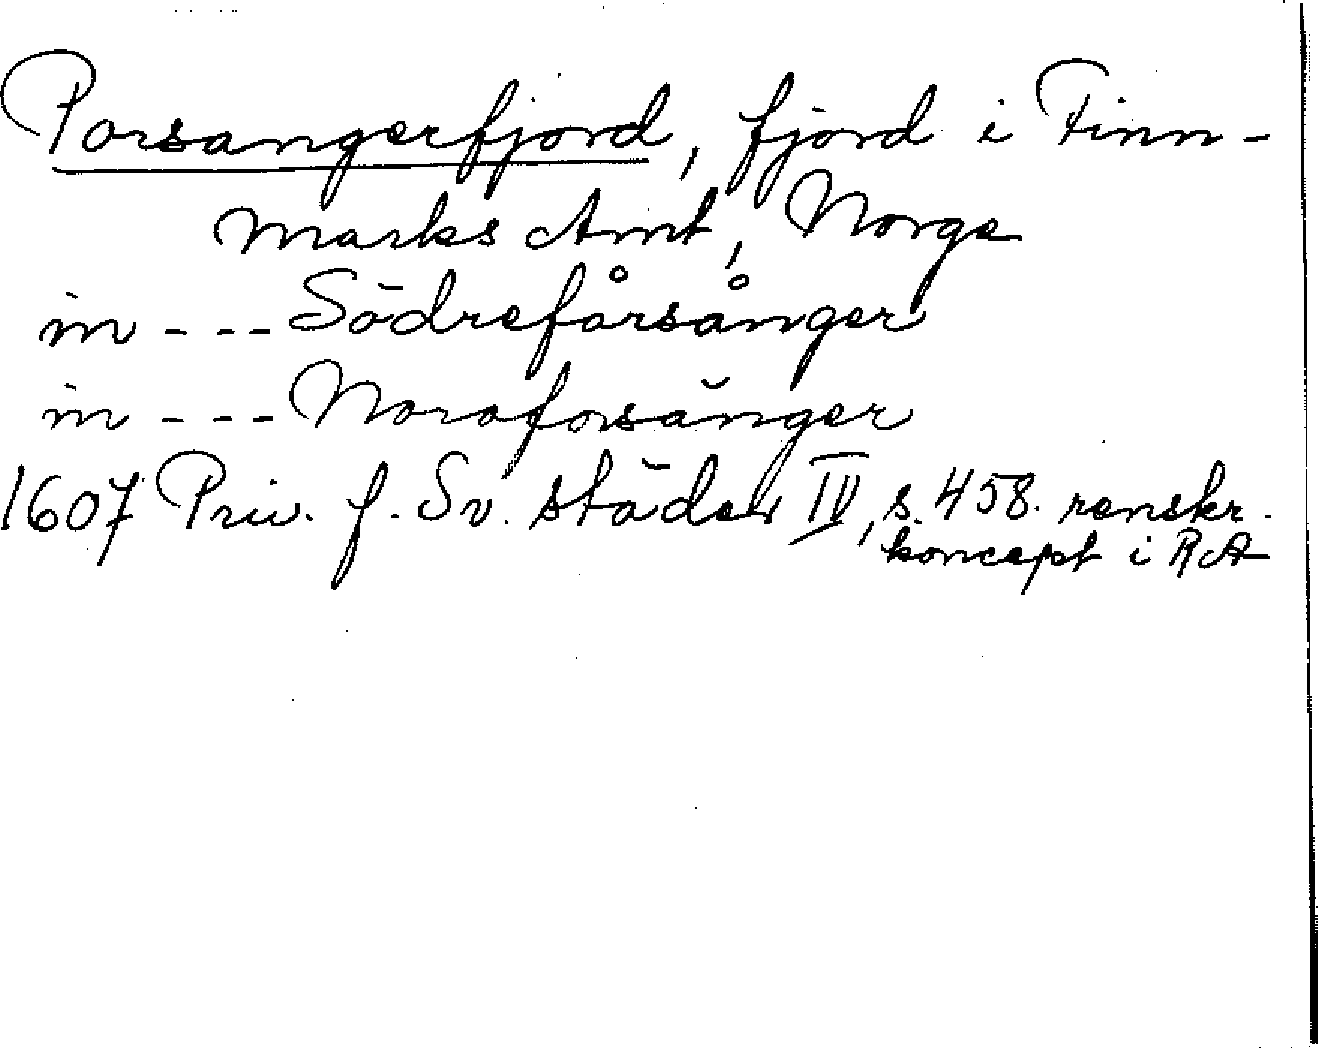 Porsangerfjord, fjord i Finn-
marks Amt, Norge
in --- Södrefårsånger
in --- Noraforsånger
1607 Priv. f. Sv. städer IV, s. 458. renskr.
koncept i RA